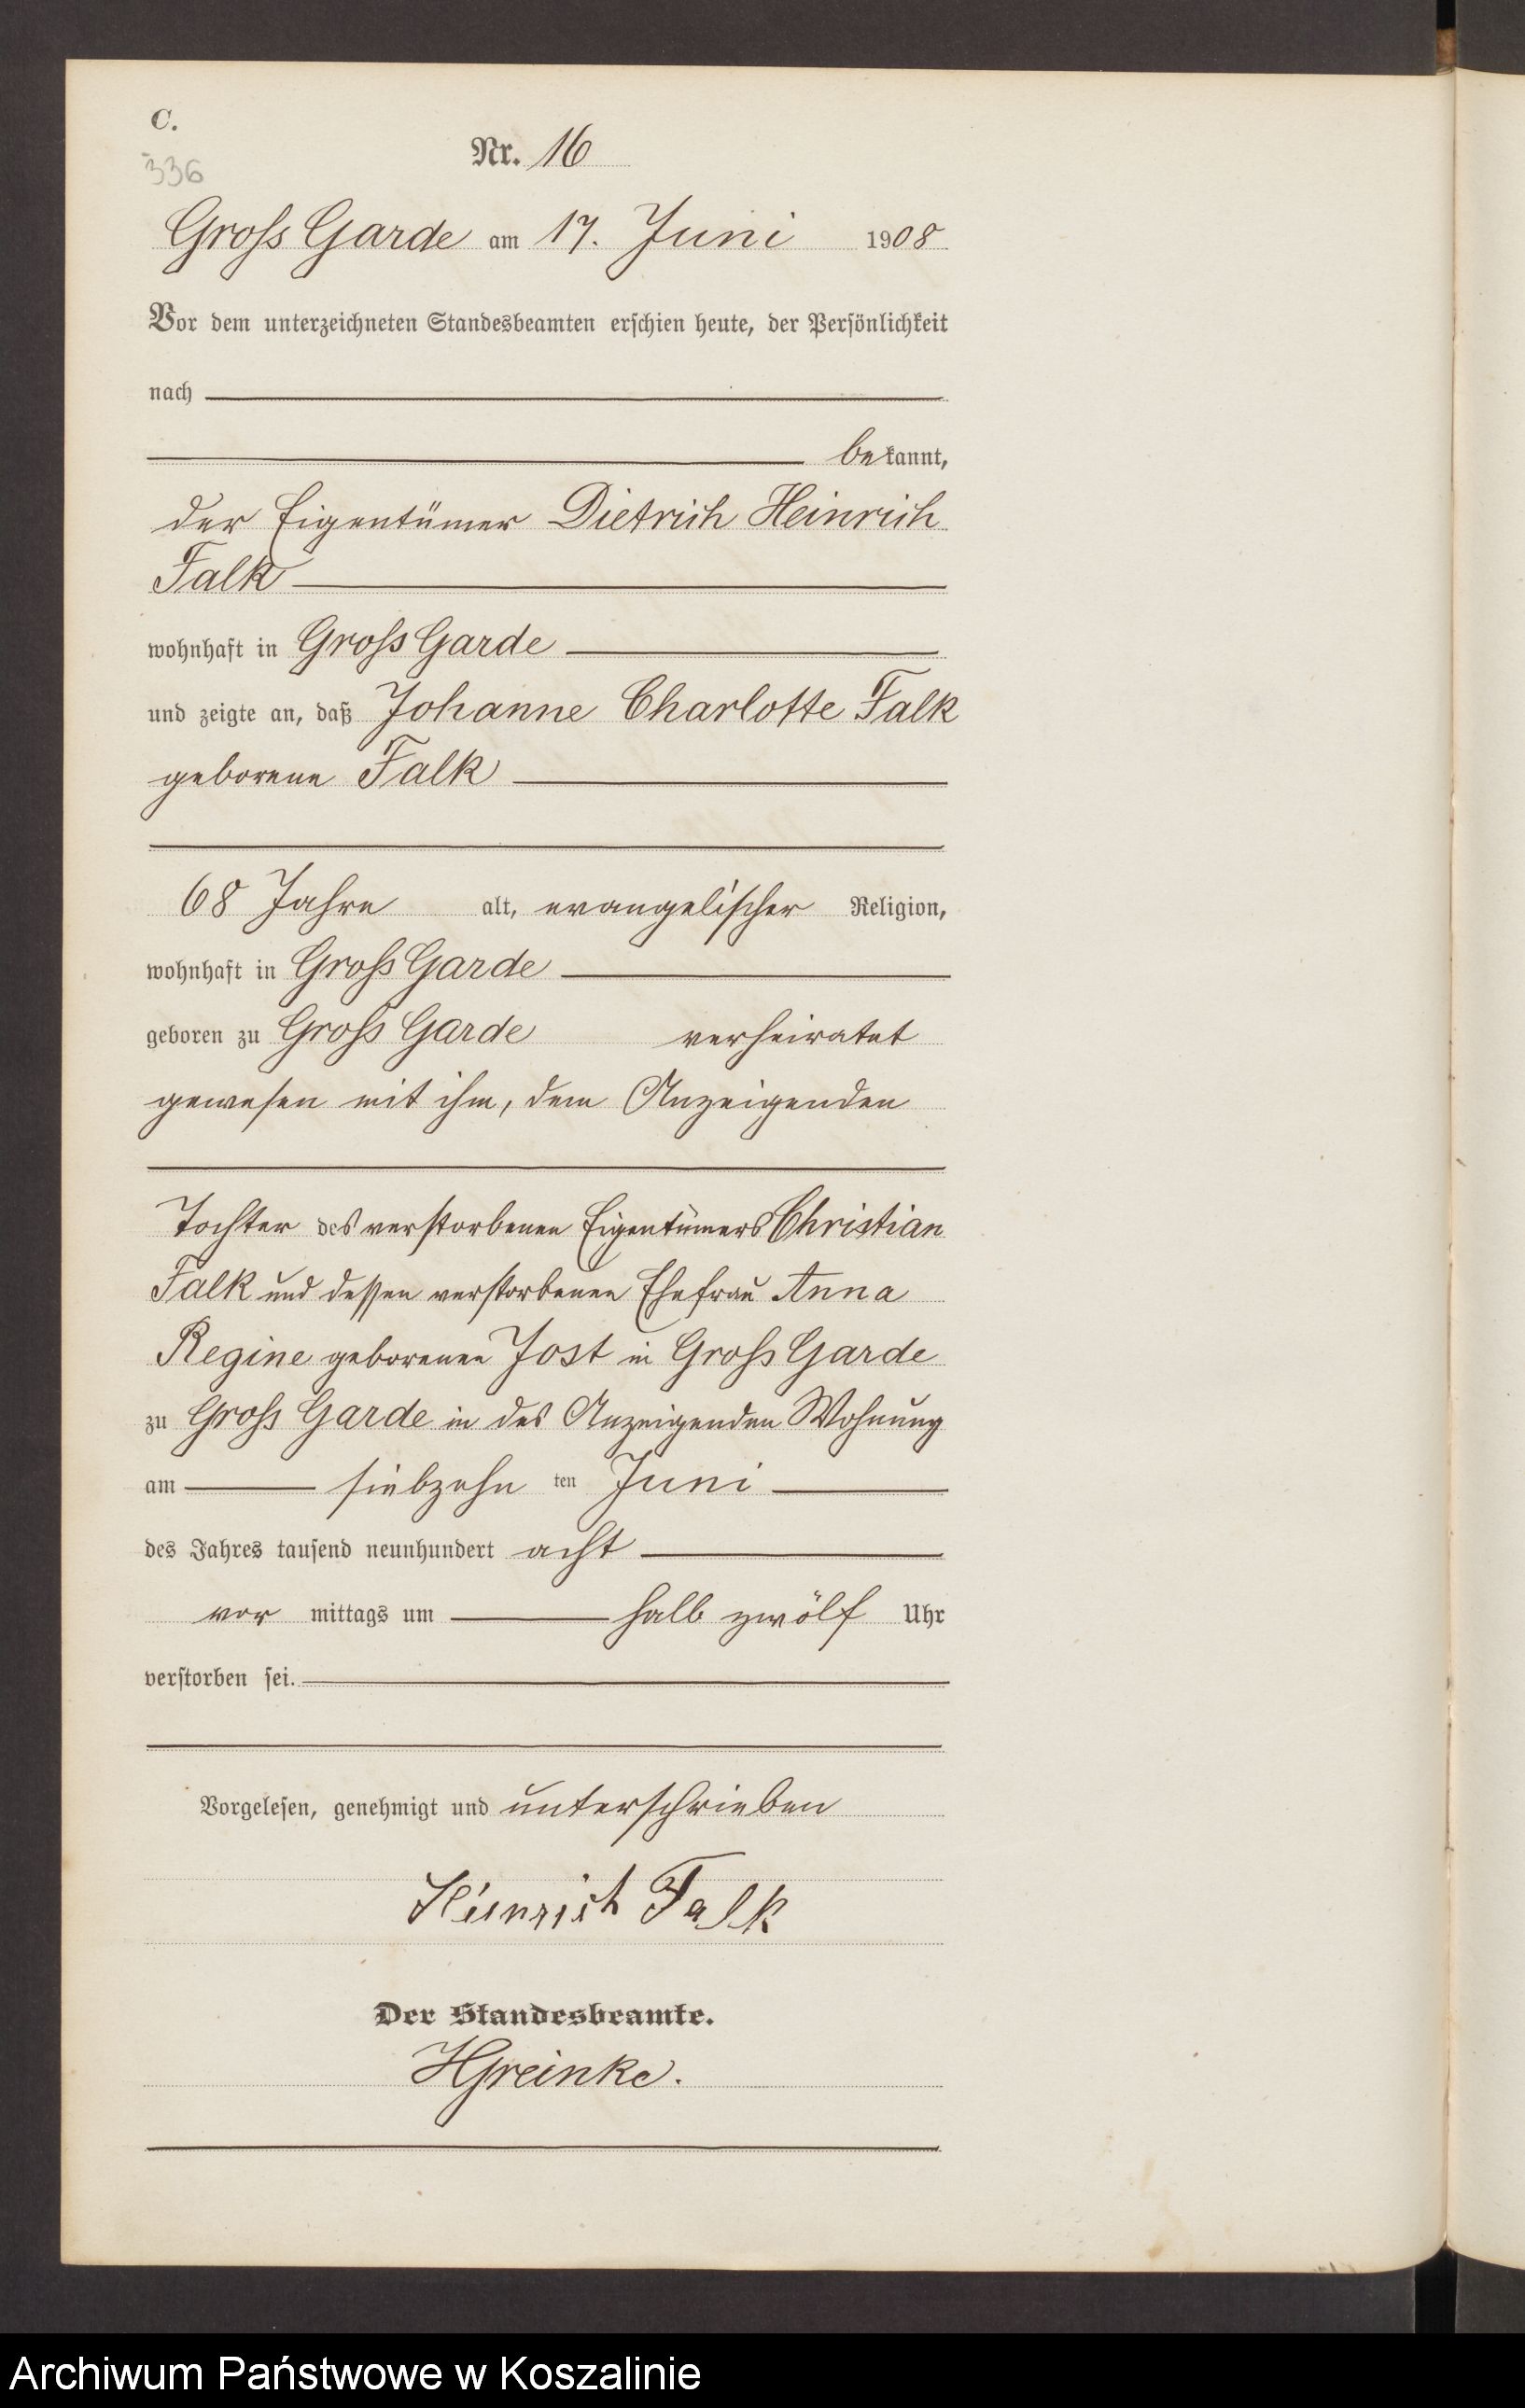 C.
336
Nr. 16
Gross Garde am 17. Juni 1908
Vor dem unterzeichneten Standesbeamten erschien heute, der Persönlichkeit
nach
bekannt,
der Eigentümer Dietrich Heinrich
Falk
wohnhaft in Gross Garde
und zeigte an, daß Johanne Charlotte Falk
geborene Falk
68 Jahre alt, evangelischer Religion,
wohnhaft in Gross Garde
geboren zu Gross Garde verheiratet
gewesen mit ihm, dem Anzeigenden
Tochter des verstorbenen Eigentümers Christian
Falk und dessen verstorbenen Ehefrau Anna
Regine geborenen Jost in Gross Garde
zu Gross Garde in des Anzeigenden Wohnung
am siebzehn ten Juni
des Jahres tausend neunhundert acht
vor mittags um halb zwölf Uhr
verstorben sei.
Vorgelesen, genehmigt und unterschrieben
Heinrich Falk
Der Standesbeamte.
HGreinke.
Archiwum Państwowe w Koszalinie